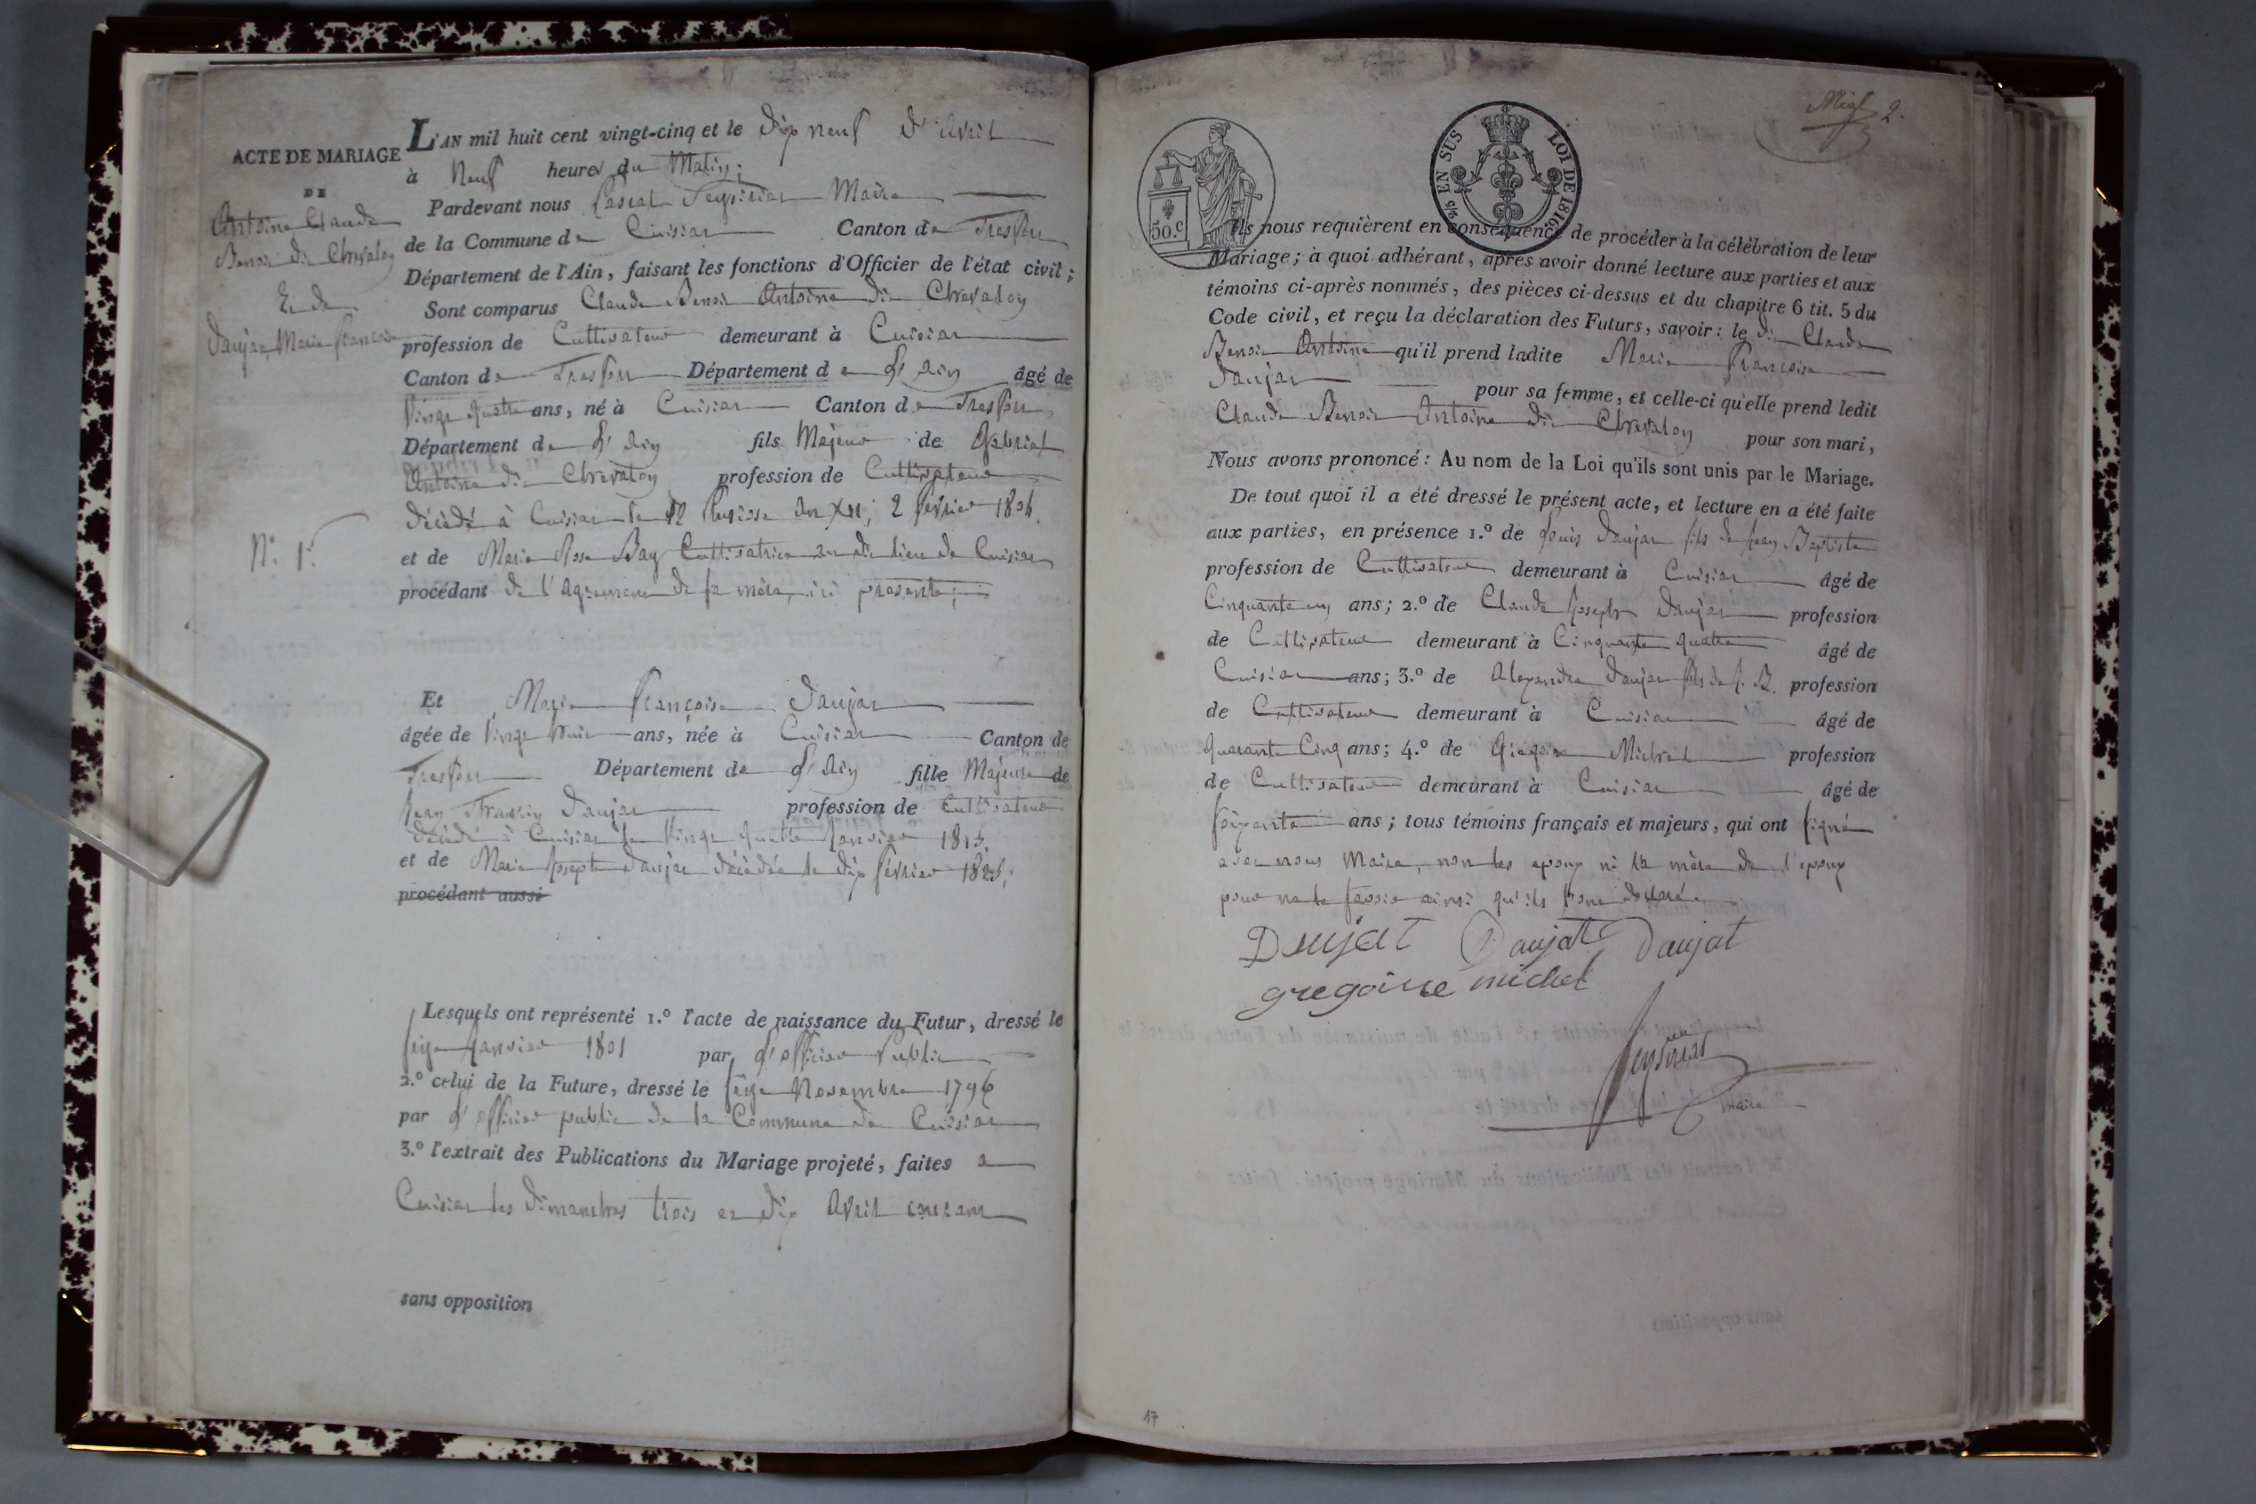 ACTE DE MARIAGE
DE
Antoine Claude
Benoit dit Chevalon
Et de
Daujat Marie françoise
N.° 1.er
L'AN mil huit cent vingt-cinq et le dix neuf d'avril
à Neuf heures du Matin;
Pardevant nous Pascal Maire
de la Commune de Cuisiat Canton de Treffort
Département de l'Ain, faisant les fonctions d'Officier de l'état civil;
Sont comparus Claude Benoit Antoine dit Chevalon
profession de Cultivateur demeurant à Cuisiat
Canton de Treffort Département de L'Ain âgé de
Vingt quatre ans, né à Cuisiat Canton de Treffort
Département de L'Ain fils Majeur de Gabriel
Antoine dit Chevalon profession de Cultivateur
décédé à Cuisiat le 12 Pluviose an XII; 2 février 1804.
et de Marie Rose Bay Cultivatrice au dit lieu de Cuisiat
procédant de l'agrement de sa mère, ici presente;
Et Marie françoise Daujat
âgée de Vingt huit ans, née à Cuisiat Canton de
Treffort Département de L'Ain fille Majeure de
Jean Daujat profession de Cultivateur
décédé à Cuisiat le Vingt quatre Janvier 1815.
et de Marie Josephe Daujat décédée le dix février 1825;
procédant aussi
Lesquels ont représenté 1.° l'acte de naissance du Futur, dressé le
seize Janvier 1801 par L'officier Public
2.° celui de la Future, dressé le seize Novembre 1796
par L'officier public de la Commune de Cuisiat
3.° l'extrait des Publications du Mariage projeté, faites a
Cuisiat les dimanches trois et dix Avril courant
sans opposition
2.
50.c
2/5 EN SUS LOI DE 1816
Ils nous requièrent en conséquence de procéder à la célébration de leur
Mariage; à quoi adhérant, après avoir donné lecture aux parties et aux
témoins ci-après nommés, des pièces ci-dessus et du chapitre 6 tit. 5 du
Code civil, et reçu la déclaration des Futurs, savoir: le dit Claude
Benoit Antoine qu'il prend ladite Marie françoise
Daujat pour sa femme, et celle-ci qu'elle prend ledit
Claude Benoit Antoine dit Chevalon pour son mari,
Nous avons prononcé: Au nom de la Loi qu'ils sont unis par le Mariage.
De tout quoi il a été dressé le présent acte, et lecture en a été faite
aux parties, en présence 1.° de Louis Daujat fils de Jean Baptiste
profession de Cultivateur demeurant à Cuisiat âgé de
Cinquante un ans; 2.° de Claude Joseph Daujat profession
de Cultivateur demeurant à Cinquante quatre âgé de
Cuisiat ans; 3.° de Alexandre Daujat fils de J. B. profession
de Cultivateur demeurant à Cuisiat âgé de
quarante Cinq ans; 4.° de Grégoire Michel profession
de Cultivateur demeurant à Cuisiat âgé de
soixante ans; tous témoins français et majeurs, qui ont signé
avec nous Maire, non les epoux ni la mère de l'epoux
pour ne le savoir ainsi qu'ils l'ont declaré.
Daujat Daujat Daujat
gregoire michel
maire
17